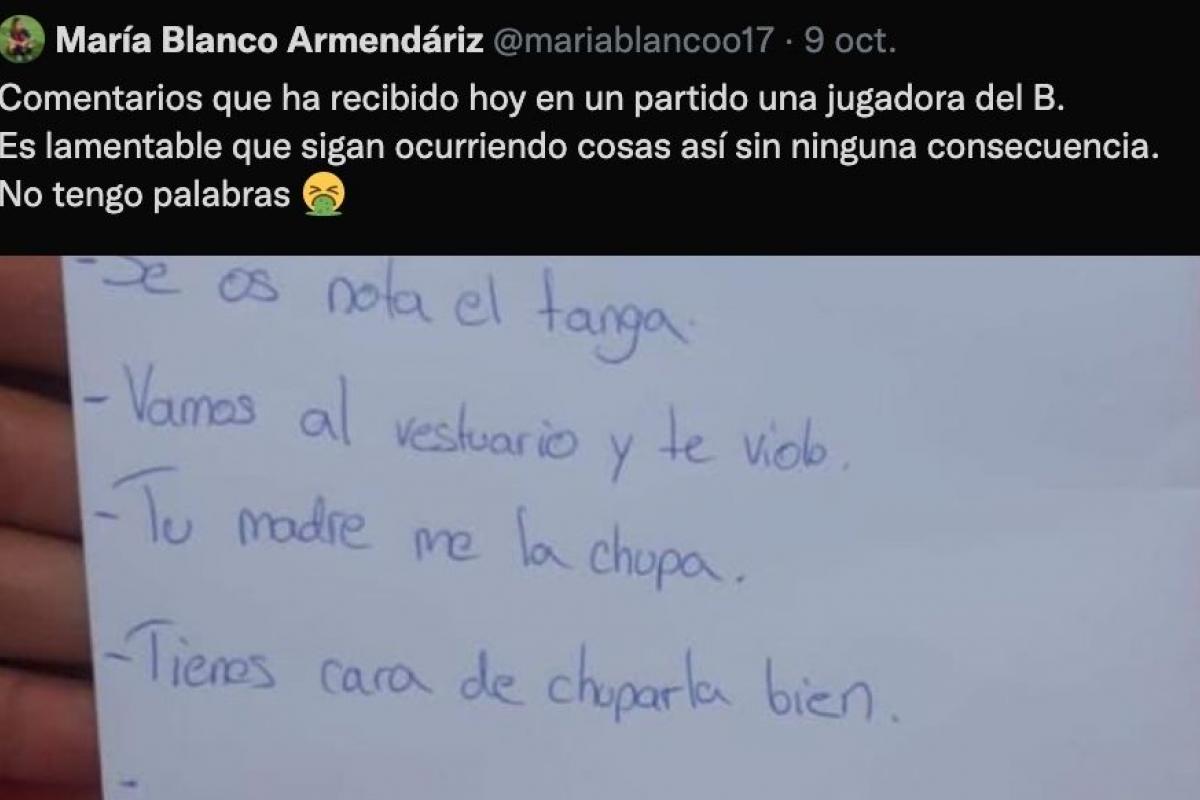 María Blanco Armendáriz @mariablancoo17 · 9 oct.
Comentarios que ha recibido hoy en un partido una jugadora del B.
Es lamentable que sigan ocurriendo cosas así sin ninguna consecuencia.
No tengo palabras 🤮
- Se os nota el tanga.
- Vamos al vestuario y te violo.
- Tu madre me la chupa.
- Tienes cara de chuparla bien.
-